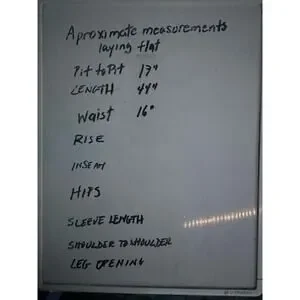 Aproximate measurements
laying flat
Pit to Pit 17"
LENGTH 44"
Waist 16"
RISE
INSEAM
HIPS
SLEEVE LENGTH
SHOULDER TO SHOULDER
LEG OPENING